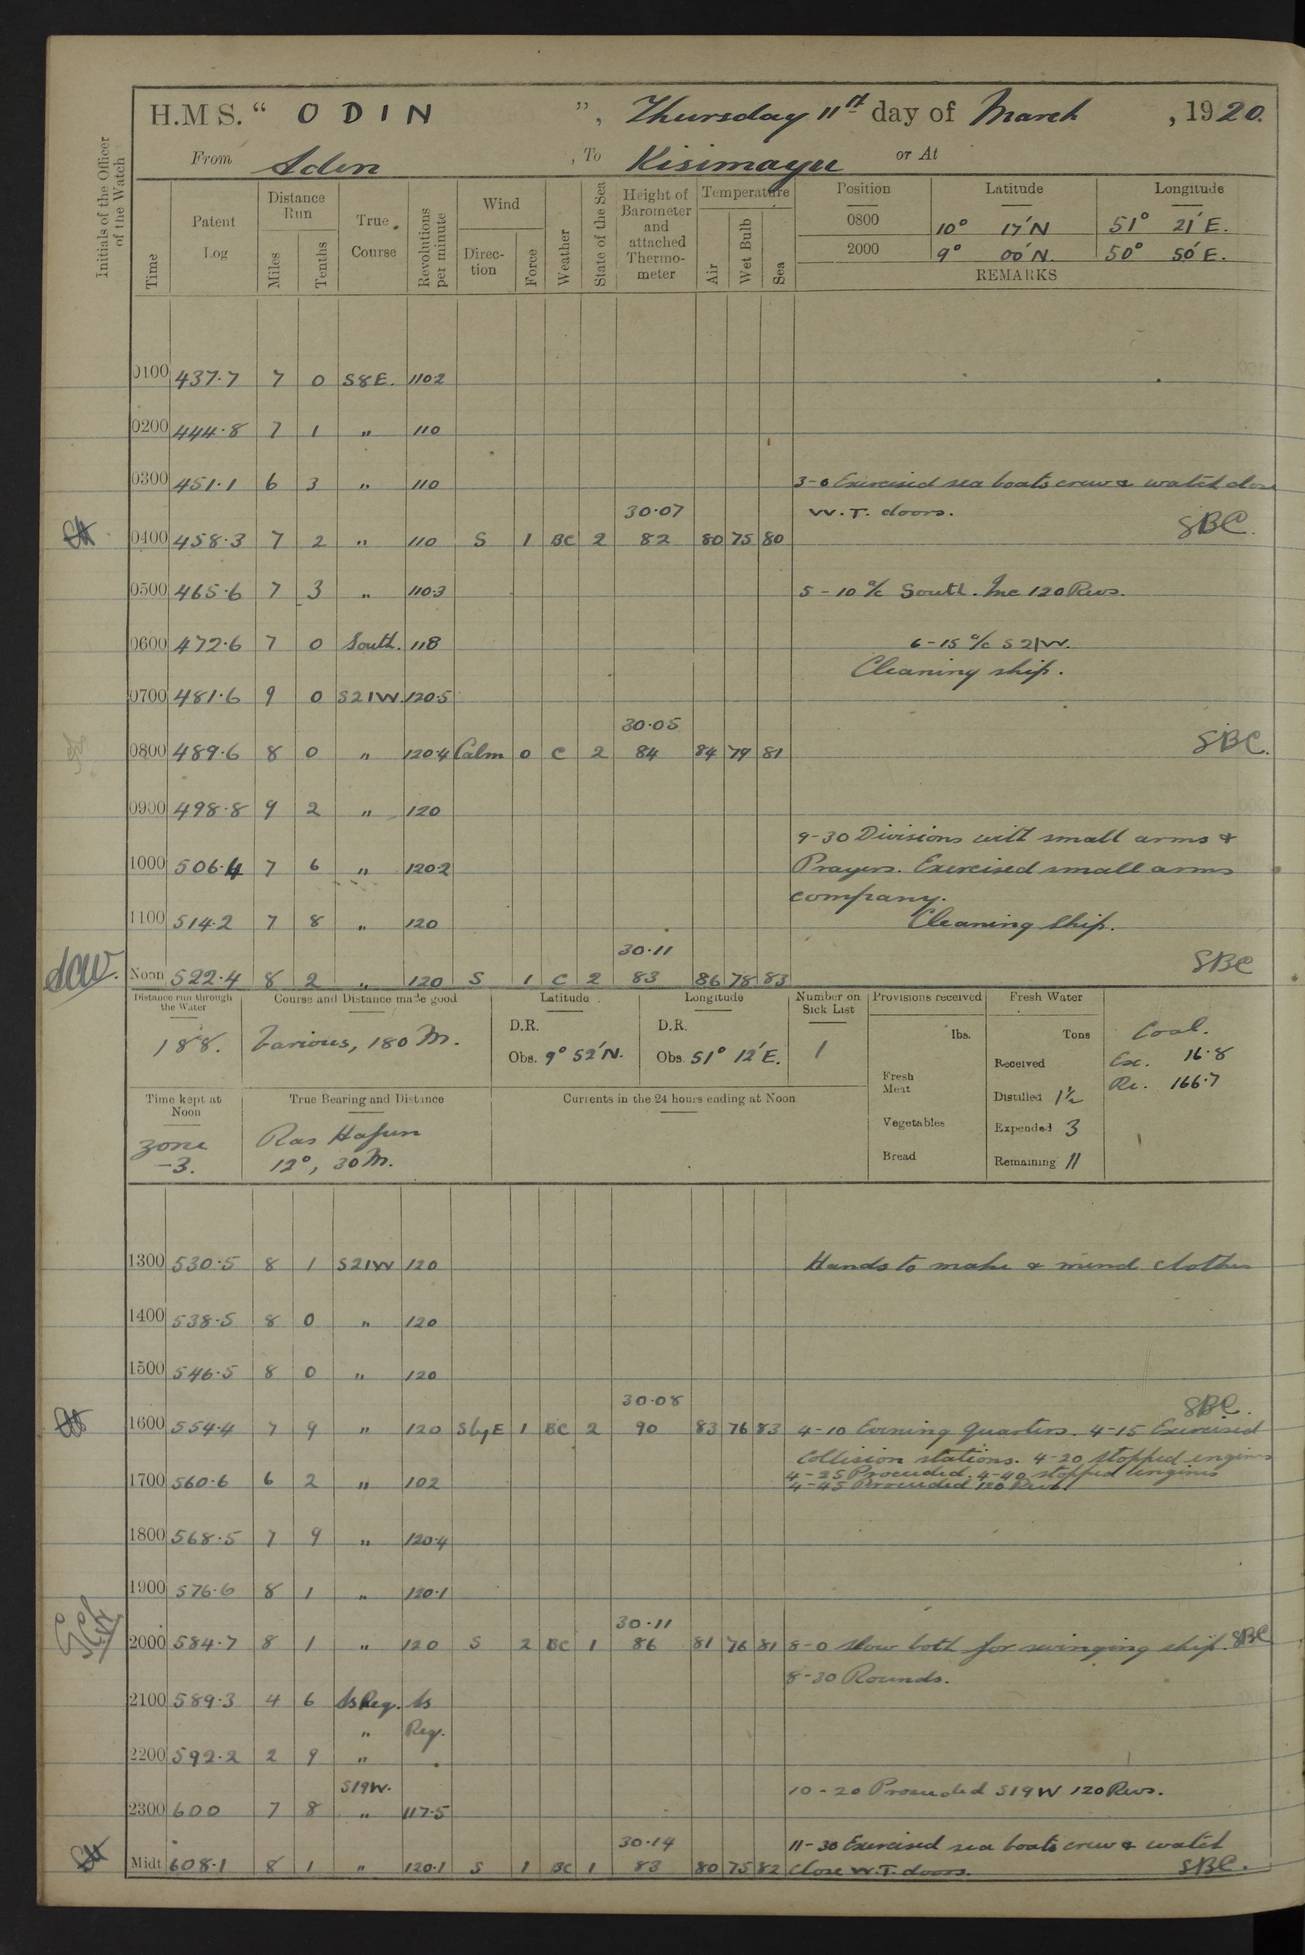 H.M S. “ ODIN ”, Thursday 11th day of March , 1920.
From Aden , To Kisimayu or At
Initials of the Officer of the Watch
Time
Patent Log
Distance Run
Miles
Tenths
True Course
Revolutions per minute
Wind
Direction
Force
Weather
State of the Sea
Height of Barometer and attached Thermometer
Temperature
Air
Wet Bulb
Sea
Position Latitude Longitude
0800 10° 17′N 51° 21′E.
2000 9° 00′N. 50° 50′E.
REMARKS
0100 437.7 7 0 S8E. 110.2
0200 444.8 7 1 " 110
0300 451.1 6 3 " 110 3-0 Exercised sea boats crew & watch close
30.07 W.T. doors.
0400 458.3 7 2 " 110 S 1 BC 2 82 80 75 80 SBC.
0500 465.6 7 3 " 110.3 5-10 a/c South. Inc 120 Revs.
0600 472.6 7 0 South. 118 6-15 a/c S21W.
Cleaning ship.
0700 481.6 9 0 S21W. 120.5
30.05
0800 489.6 8 0 " 120.4 Calm 0 C 2 84 84 79 81 SBC.
0900 498.8 9 2 " 120
9-30 Divisions with small arms &
1000 506.4 7 6 " 120.2 Prayers. Exercised small arms
company.
1100 514.2 7 8 " 120 Cleaning Ship.
30.11
Noon 522.4 8 2 " 120 S 1 C 2 83 86 78 83 SBC
Distance run through the Water
188.
Course and Distance made good
Various, 180 M.
Latitude
D.R.
Obs. 9° 52′N.
Longitude
D.R.
Obs. 51° 12′E.
Number on Sick List
1
Provisions received
lbs.
Fresh Meat
Vegetables
Bread
Fresh Water
Tons
Received
Distilled 1½
Expended 3
Remaining 11
Coal.
Ex. 16.8
Re. 166.7
Time kept at Noon
Zone
-3.
True Bearing and Distance
Ras Hafun
12°, 30 M.
Currents in the 24 hours ending at Noon
1300 530.5 8 1 S21W 120 Hands to make & mend clothes
1400 538.5 8 0 " 120
1500 546.5 8 0 " 120
30.08 SBC.
1600 554.4 7 9 " 120 SbyE 1 BC 2 90 83 76 83 4-10 Evening Quarters. 4-15 Exercised
Collision stations. 4-20 stopped engines
4-25 Proceeded. 4-40 stopped Engines
1700 560.6 6 2 " 102 4-45 Proceeded 120 Revs.
1800 568.5 7 9 " 120.4
1900 576.6 8 1 " 120.1
30.11
2000 584.7 8 1 " 120 S 2 BC 1 86 81 76 81 8-0 Slow both for swinging ship. SBC
8-30 Rounds.
2100 589.3 4 6 As Req. As
" Req.
2200 592.2 2 9 "
S19W. 10-20 Proceeded S19W 120 Revs.
2300 600 7 8 " 117.5
30.14 11-30 Exercised sea boats crew & watch
Midt 608.1 8 1 " 120.1 S 1 BC 1 83 80 75 82 Close W.T. doors. SBC.